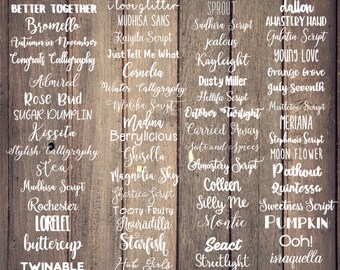 BETTER TOGETHER
Bromello
Autumn in November
Congrats Calligraphy
Admired
Rose Bud
SUGAR PUMPLIN
Kissita
Stylish Calligraphy
Stea
Mudhisa Script
Rochester
LORELEI
buttercup
TWINABLE
iloveglitter
MUDHISA SANS
Kaiyila Script
Just Tell Me What
Cornelia
Winter Calligraphy
Madina
Berrylicious
Ghisella
Magnolia Sky
Shartica Script
Tooty Fruity
Starfish
Hun Girls
Sprout
Sudhira Script
jealous
Kayleight
Dusty Miller
Hellifa Script
October Twilight
Carried Away
Salt and Spices
Amastery Script
Colleen
Silly Me
Montic
Seact
Streetlight
dalton
AMASTERY HAND
Gulatin Script
YOUNG LOVE
Orange Grove
July Seventh
Mistletoe Script
MERIANA
Stephanie Script
MOON FLOWER
Pathout
Quintessa
Sweetness Script
PUMPKIN
Ooh!
israquella